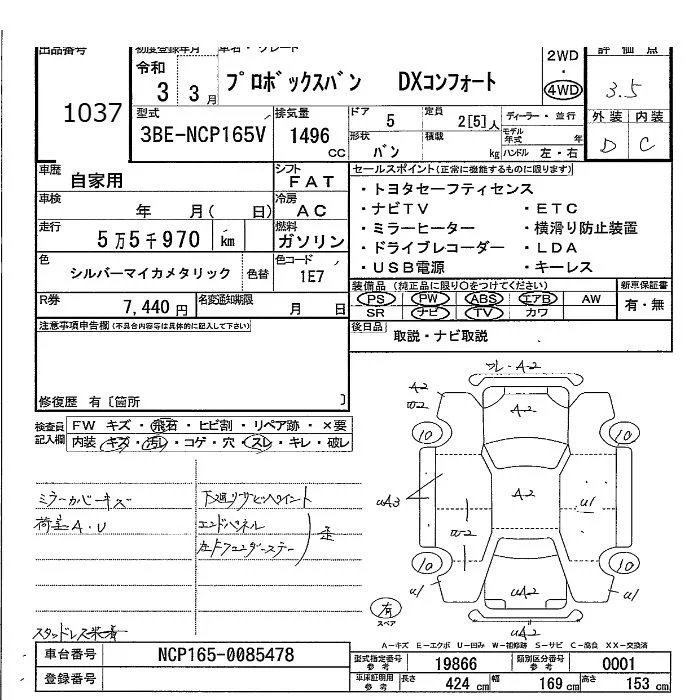 出品番号
1037
初度登録年月
令和
3 3月
車名・グレード
プロボックスバン DXコンフォート
2WD
・
4WD
評価点
3.5
外装 内装
D C
型式
3BE-NCP165V
排気量
1496
CC
ドア
5
定員
2[5]人
ディーラー・並行
形状
バン
積載
kg
モデル年式
年
ハンドル 左・右
車歴
自家用
シフト
FAT
車検
年 月( 日)
冷房
AC
走行
5万5千970 km
燃料
ガソリン
色
シルバーマイカメタリック
色替
色コード
1E7
R券
7,440円
名変通知期限
月 日
セールスポイント(正常に機能するものに限ります)
・トヨタセーフティセンス
・ナビTV ・ETC
・ミラーヒーター ・横滑り防止装置
・ドライブレコーダー ・LDA
・USB電源 ・キーレス
装備品 (純正品に限り○をつけてください)
PS PW ABS エアB AW
SR ナビ TV カワ
新車保証書
有・無
後日品
取説・ナビ取説
注意事項申告欄(不具合内容等は具体的に記入して下さい)
修復歴 有〔箇所 〕
検査員記入欄
FW キズ・飛石・ヒビ割・リペア跡・×要
内装 キズ・汚レ・コゲ・穴・スレ・キレ・破レ
ミラーカバーキズ
荷室A・U
下廻りサビペイント
エンドパネル
左Fフェンダーステー
歪
スタッドレス装着
フレ-A2
A2
W2
A2
10
10
uA3
A2
u1
W2
10
10
u1
uA2
u1
uA2
有
スペア
A-キズ E-エクボ U-凹み W-補修跡 S-サビ C-腐食 XX-交換済
車台番号
NCP165-0085478
登録番号
型式指定番号
参考
19866
類別区分番号
参考
0001
車庫証明用
参考
長さ
424 cm
幅
169 cm
高さ
153 cm